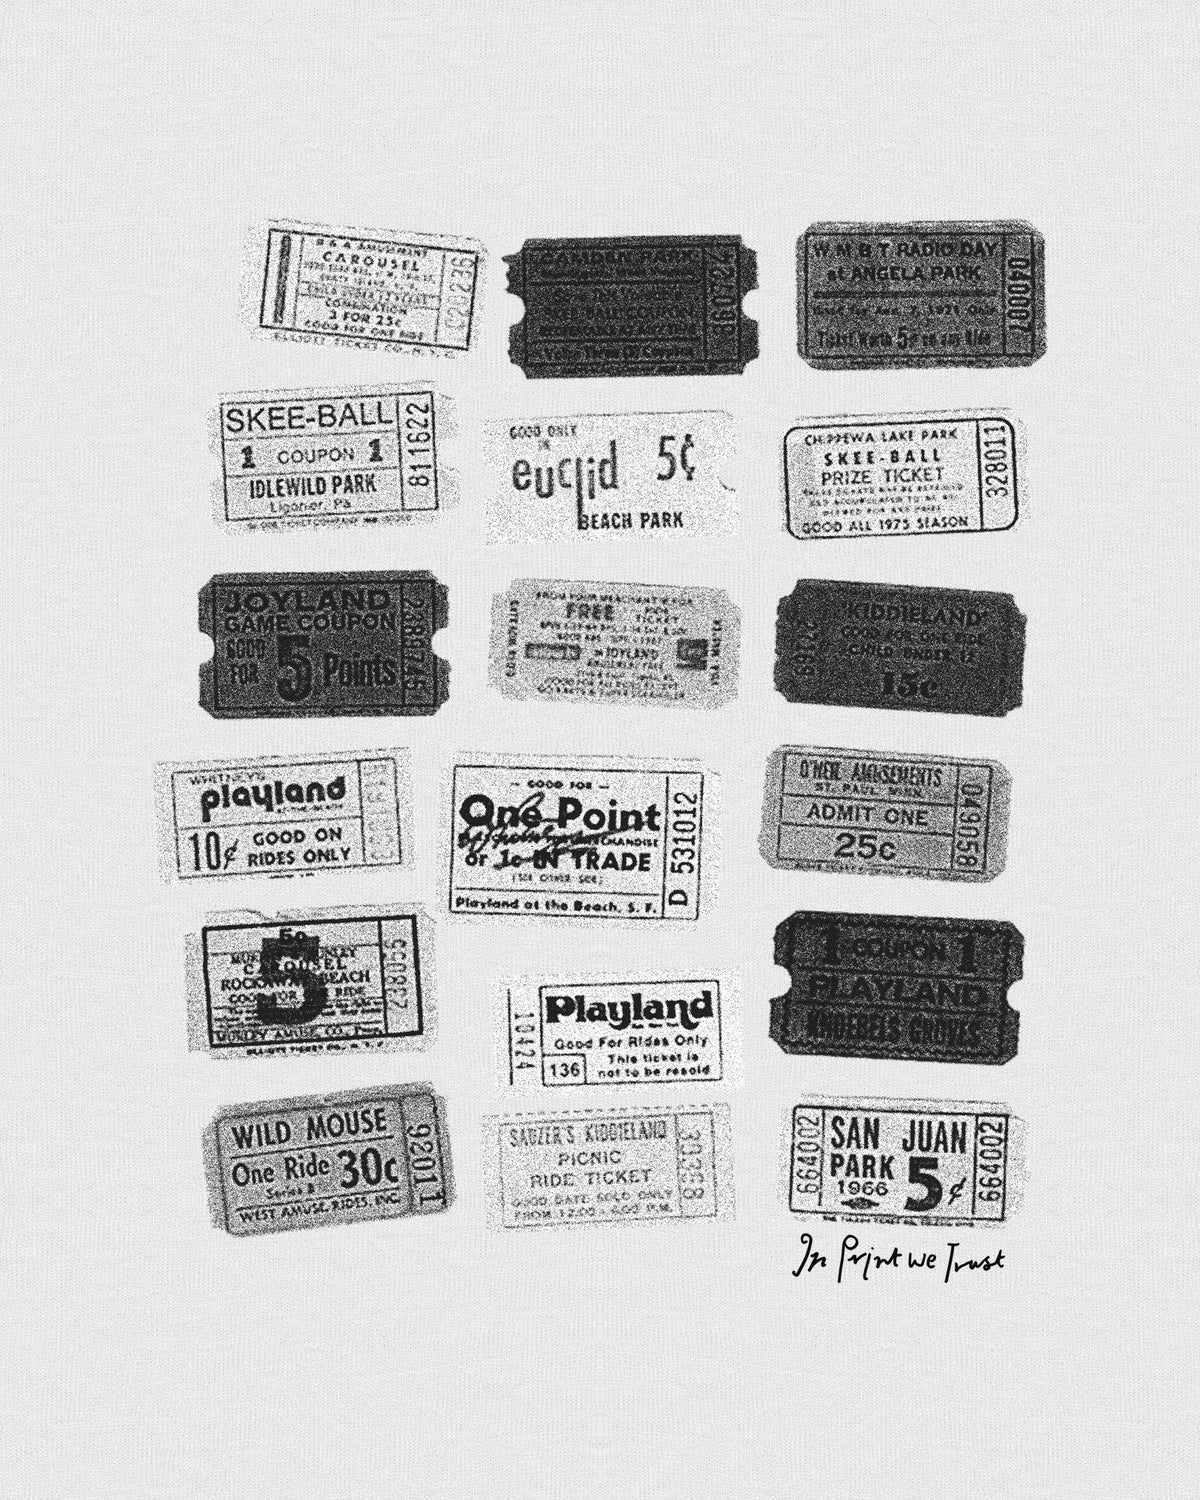 CAROUSEL
COMBINATION
3 FOR 25c
GOOD FOR ONE RIDE
ELLIOTT TICKET CO., N.Y.C.
C20236
CAMDEN PARK
SKEE BALL COUPON
W M B T RADIO DAY
at ANGELA PARK
Ticket Worth 5¢ on any Ride
040007
SKEE-BALL
1 COUPON 1
IDLEWILD PARK
Ligonier, Pa
811622
GOOD ONLY
IN
euclid 5¢
BEACH PARK
CHIPPEWA LAKE PARK
SKEE-BALL
PRIZE TICKET
GOOD ALL 1975 SEASON
328011
JOYLAND
GAME COUPON
GOOD
FOR
5 Points
FREE
RIDE
TICKET
JOYLAND
AMUSEMENT PARK
"KIDDIELAND"
GOOD FOR ONE RIDE
CHILD UNDER 12
15c
WHITNEY'S
playland
AT-THE-BEACH
10¢ GOOD ON
RIDES ONLY
— GOOD FOR —
One Point
MERCHANDISE
or 1c IN TRADE
(SEE OTHER SIDE)
Playland at the Beach, S. F.
D 531012
O'NEIL AMUSEMENTS
ST. PAUL, MINN.
ADMIT ONE
25c
049058
5c
CAROUSEL
ROCKAWAY BEACH
5
238055
ELLIOTT TICKET CO., N. Y. C.
10424
Playland
Good For Rides Only
136
This ticket is
not to be resold
1 COUPON 1
PLAYLAND
KNOEBELS GROVES
WILD MOUSE
One Ride 30c
Series B
WEST AMUSE. RIDES, INC.
92011
SAUZER'S KIDDIELAND
PICNIC
RIDE TICKET
GOOD DATE SOLD ONLY
FROM 12:00 - 6:00 P.M.
664002
SAN JUAN
PARK 5¢
1966
664002
In Print we Trust